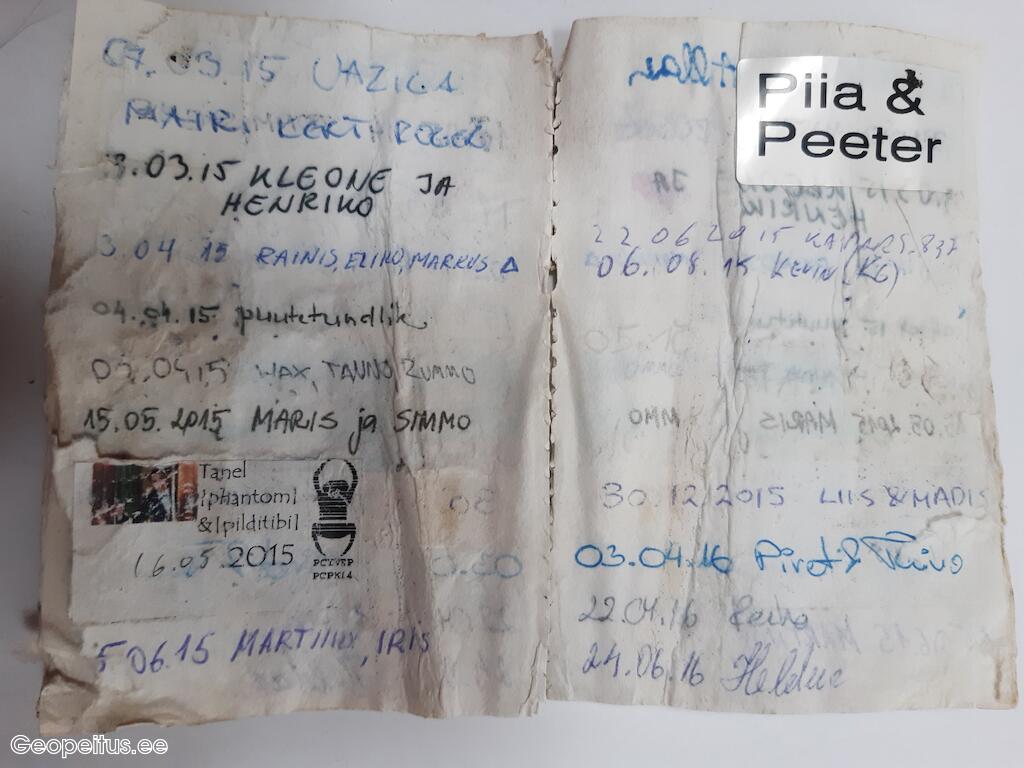 07.03.15 VAZIGA
MAIRI, KERT
3.03.15 KLEONE JA
HENRIKO
3.04 15 RAINIS, ELIKO, MARKUS
04.04.15. puutetundlik
WAX, TAUNO ZUMMO
15.05.2015 MARIS ja SIMMO
Tanel
|phantom|
&|pilditibi|
16.05.2015
PCTVEP
PCPKI4
5 06.15 MARTINIX, IRIS
Piia &
Peeter
22 06 2015 KAIPARS.837
06.08.15 KEVIN (KG)
30.12.2015 LIIS & MADIS
03.04.16 Piret &
22.04.16
24.06.16
Geopeitus.ee